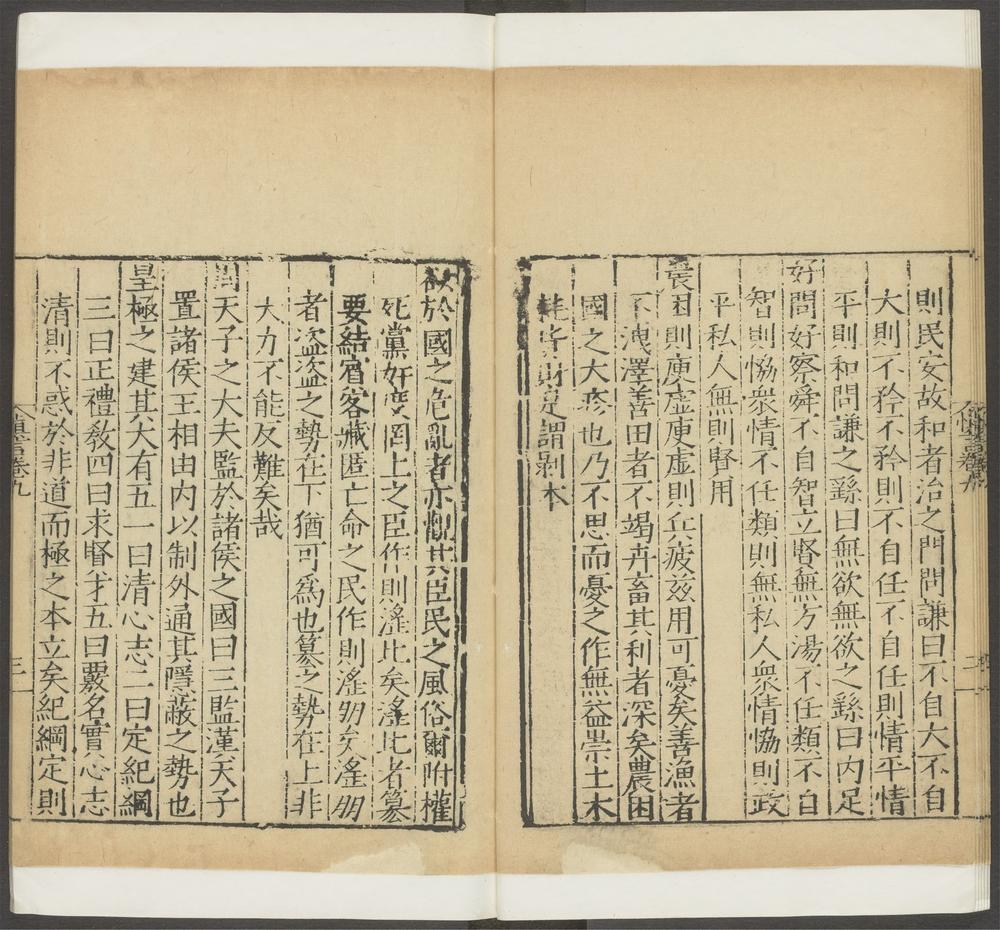 則民安故和者治之門問謙曰不自大不自
大則不矜不矜則不自任不自任則情平情
平則和問謙之繇曰無欲無欲之繇曰內足
好問好察舜不自智立賢無方湯不任類不自
智則恊衆情不任類則無私人衆情恊則政
平私人無則賢用
農困則庾虛庾虛則兵疲兹用可憂矣善漁者
不洩澤善田者不竭卉畜其利者深矣農困
國之大疹也乃不思而憂之作無益崇土木
耗帑財是謂剝本
欲於國之危亂者亦觀其臣民之風俗爾附權
死黨奸度罔上之臣作則淫比矣淫比者簒
要結賓客藏匿亡命之民作則淫朋矣淫朋
者盗盗之勢在下猶可爲也簒之勢在上非
大力不能反難矣哉
周天子之大夫監於諸侯之國曰三監漢天子
置諸侯王相由內以制外通其隱蔽之勢也
皇極之建其大有五一曰清心志二曰定紀綱
三曰正禮敎四曰求賢才五曰覈名實心志
清則不惑於非道而極之本立矣紀綱定則
慎言卷九
三